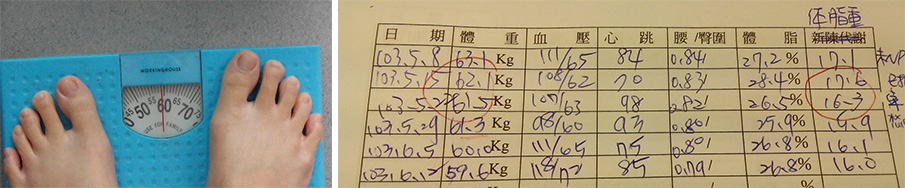 WORKINGHOUSE
40 45 50 55 60 65 70 75 80
USE FOR FAMILY
体脂重
日 期 體 重 血 壓 心 跳 腰/臀圍 體 脂 新陳代謝
103.5.8 63.1 Kg 111/65 84 0.84/ 27.2% 17.1
103.5.15 62.1 Kg 108/62 70 0.83/ 28.4% 17.6
103.5.22 61.5 Kg 107/63 98 0.82/ 26.5% 16.3
103.5.29 61.3 Kg 98/60 93 0.80/ 25.9%
103.6.5 60.0 Kg 111/65 75 0.80/ 26.8% 16.1
103.6.12 59.6 Kg 118/72 85 0.79/ 26.8% 16.0
%